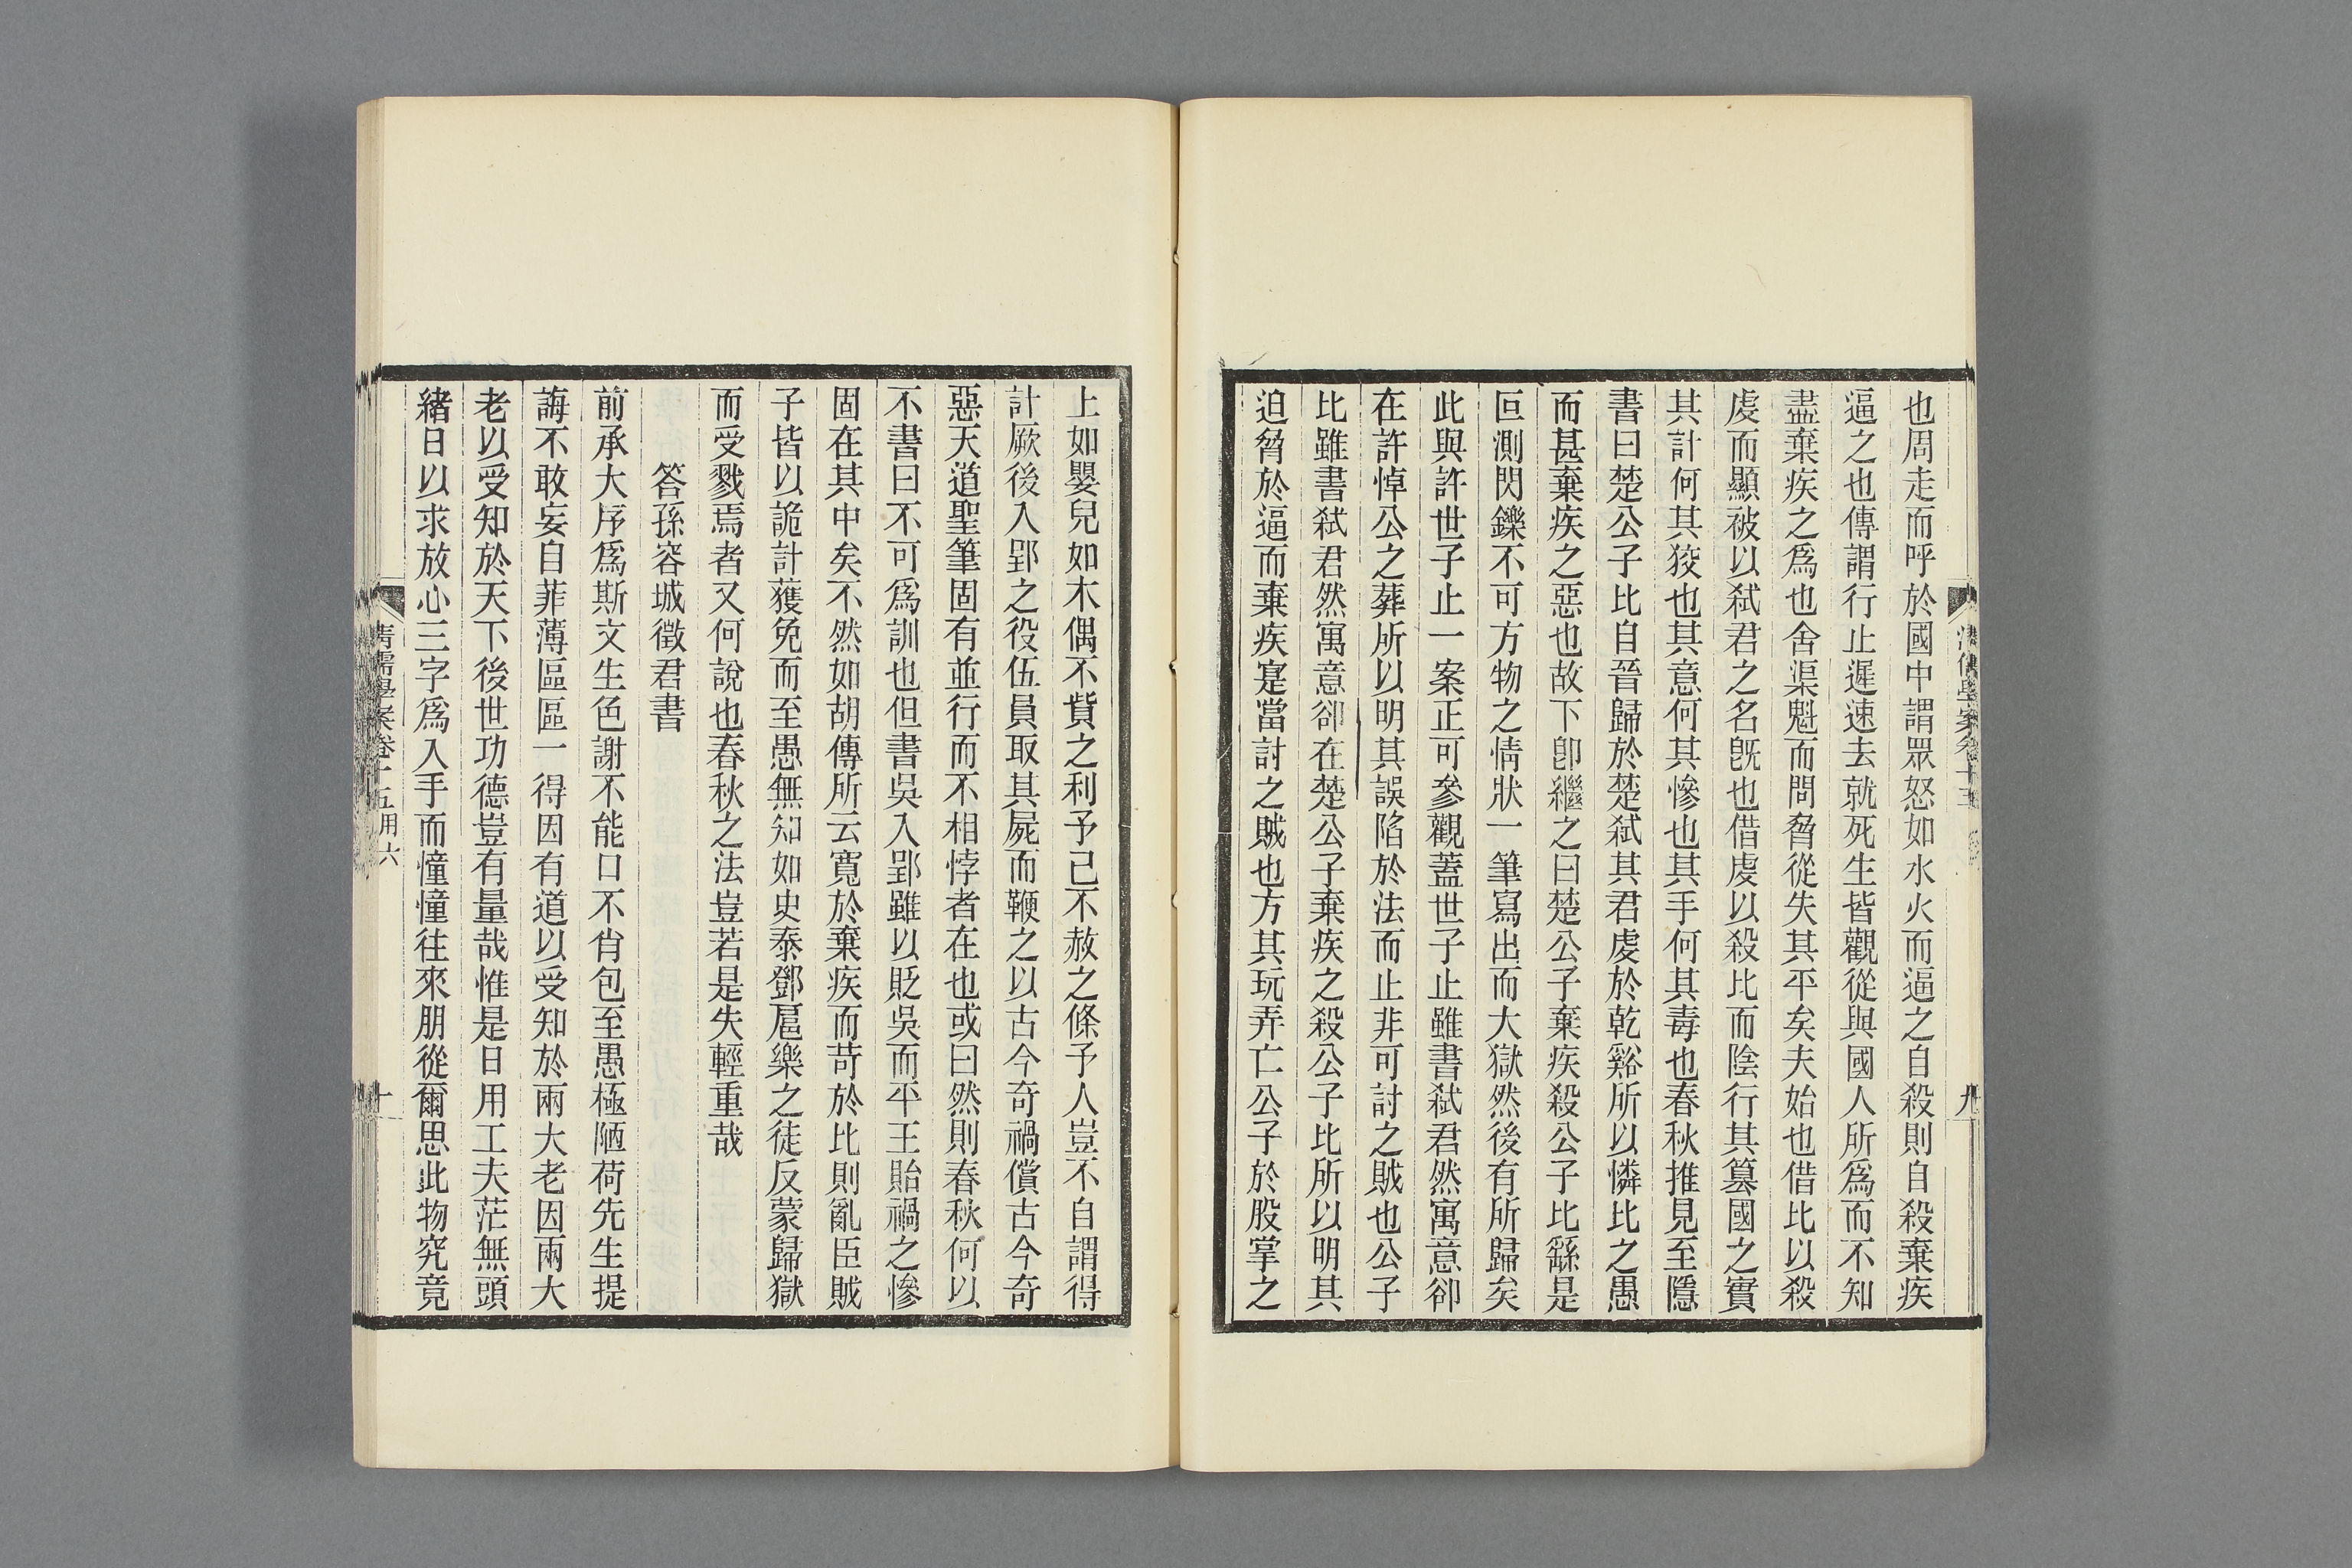 也周走而呼於國中謂眾怒如水火而逼之自殺則自殺棄疾
逼之也傳謂行止遲速去就死生皆觀從與國人所爲而不知
盡棄疾之爲也舍渠魁而問脅從失其平矣夫始也借比以殺
虔而顯被以弑君之名旣也借虔以殺比而陰行其篡國之實
其計何其狡也其意何其慘也其手何其毒也春秋推見至隱
書曰楚公子比自晉歸於楚弑其君虔於乾谿所以憐比之愚
而甚棄疾之惡也故下卽繼之曰楚公子棄疾殺公子比繇是
叵測閃鑠不可方物之情狀一筆寫出而大獄然後有所歸矣
此與許世子止一案正可參觀蓋世子止雖書弑君然寓意卻
在許悼公之葬所以明其誤陷於法而止非可討之賊也公子
比雖書弑君然寓意卻在楚公子棄疾之殺公子比所以明其
迫脅於逼而棄疾寔當討之賊也方其玩弄亡公子於股掌之
上如嬰兒如木偶不貲之利予己不赦之條予人豈不自謂得
計厥後入郢之役伍員取其屍而鞭之以古今奇禍償古今奇
惡天道聖筆固有並行而不相悖者在也或曰然則春秋何以
不書曰不可爲訓也但書吳入郢雖以貶吳而平王貽禍之慘
固在其中矣不然如胡傳所云寬於棄疾而苛於比則亂臣賊
子皆以詭計獲免而至愚無知如史泰鄧扈樂之徒反蒙歸獄
而受戮焉者又何說也春秋之法豈若是失輕重哉
答孫容城徵君書
前承大序爲斯文生色謝不能口不肖包至愚極陋荷先生提
誨不敢妄自菲薄區區一得因有道以受知於兩大老因兩大
老以受知於天下後世功德豈有量哉惟是日用工夫茫無頭
緒日以求放心三字爲入手而憧憧往來朋從爾思此物究竟
清儒學案卷十五用六
十